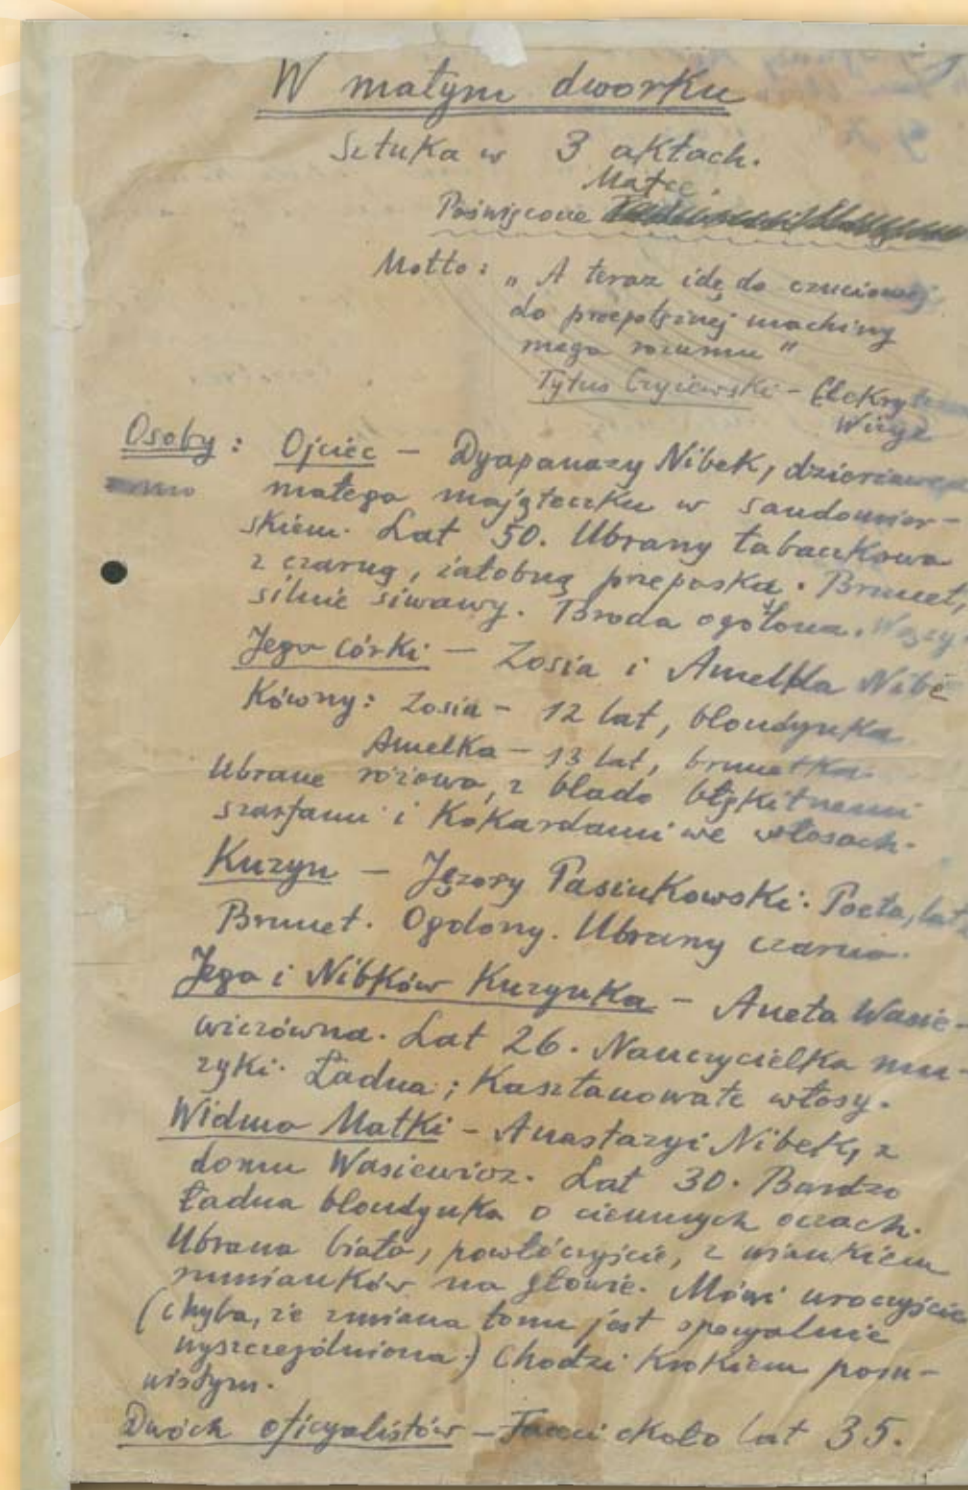 W małym dworku
Sztuka w 3 aktach.
Matce.
Poświęcone
Motto: „A teraz idę do czuciowej
do przepotężnej machiny
mego rozumu"
Tytus Czyżewski – Elektryczne
Wizye
Osoby: Ojciec – Dyapanazy Nibek, dzierżawca
małego mająteczku w sandomier-
skiem. Lat 50. Ubrany tabaczkowo
z czarną, żałobną przepaską. Brunet,
silnie siwawy. Broda ogolona. Wąsy.
Jego córki – Zosia i Amelka Nibe
kówny: Zosia – 12 lat, blondynka
Amelka – 13 lat, brunetka.
Ubrane różowo, z blado błękitnemi
szarfami i kokardami we włosach.
Kuzyn – Jęzory Pasiukowski. Poeta, lat
Brunet. Ogolony. Ubrany czarno.
Jego i Nibków Kuzynka – Aneta Wasie-
wiczówna. Lat 26. Nauczycielka mu-
zyki. Ładna; Kasztanowate włosy.
Widmo Matki – Anastazyi Nibek, z
domu Wasiewicz. Lat 30. Bardzo
ładna blondynka o ciemnych oczach.
Ubrana biało, powłóczyście, z wiankiem
rumianków na głowie. Mówi uroczyście
(chyba, że zmiana tonu jest specyalnie
wyszczególniona.) Chodzi krokiem posu-
wistym.
Dwóch oficyalistów – Faceci około lat 35.